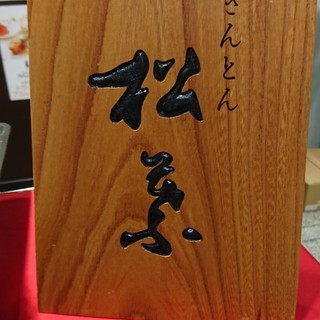 きんとん
松葉